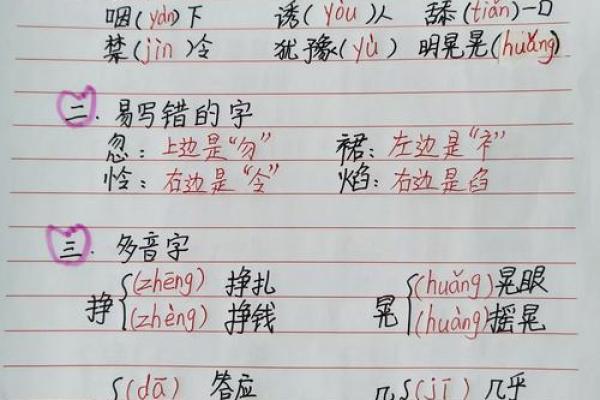 咽(yàn)下 诱(yòu)人 舔(tiǎn)一口
禁(jìn)令 犹豫(yù) 明晃晃(huǎng)
二.易写错的字
忽：上边是“勿” 裙：左边是“衤”
怜：右边是“令” 焰：右边是臽
三.多音字
挣{(zhēng)挣扎 晃{(huǎng)晃眼
(zhèng)挣钱 (huàng)摇晃
{(dā)答应 几{(jī)几乎